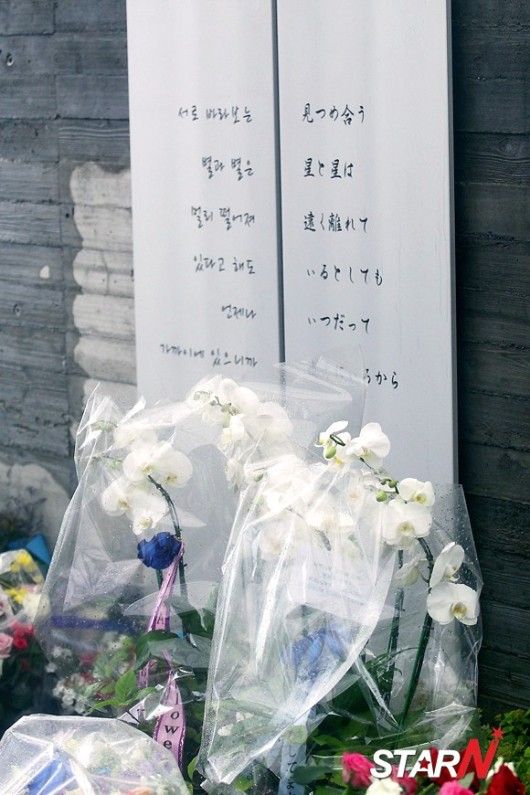 서로 바라보는
별과 별은
멀리 떨어져
있다고 해도
언제나
가까이에 있으니까
見つめ合う
星と星は
遠く離れて
いるとしても
いつだって
るから
owe
STARN